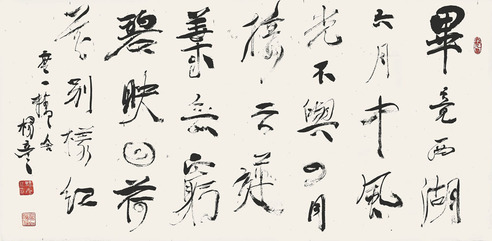 畢竟西湖
六月中風
光不與四
接天蓮
葉無窮
碧映日荷
花別樣紅